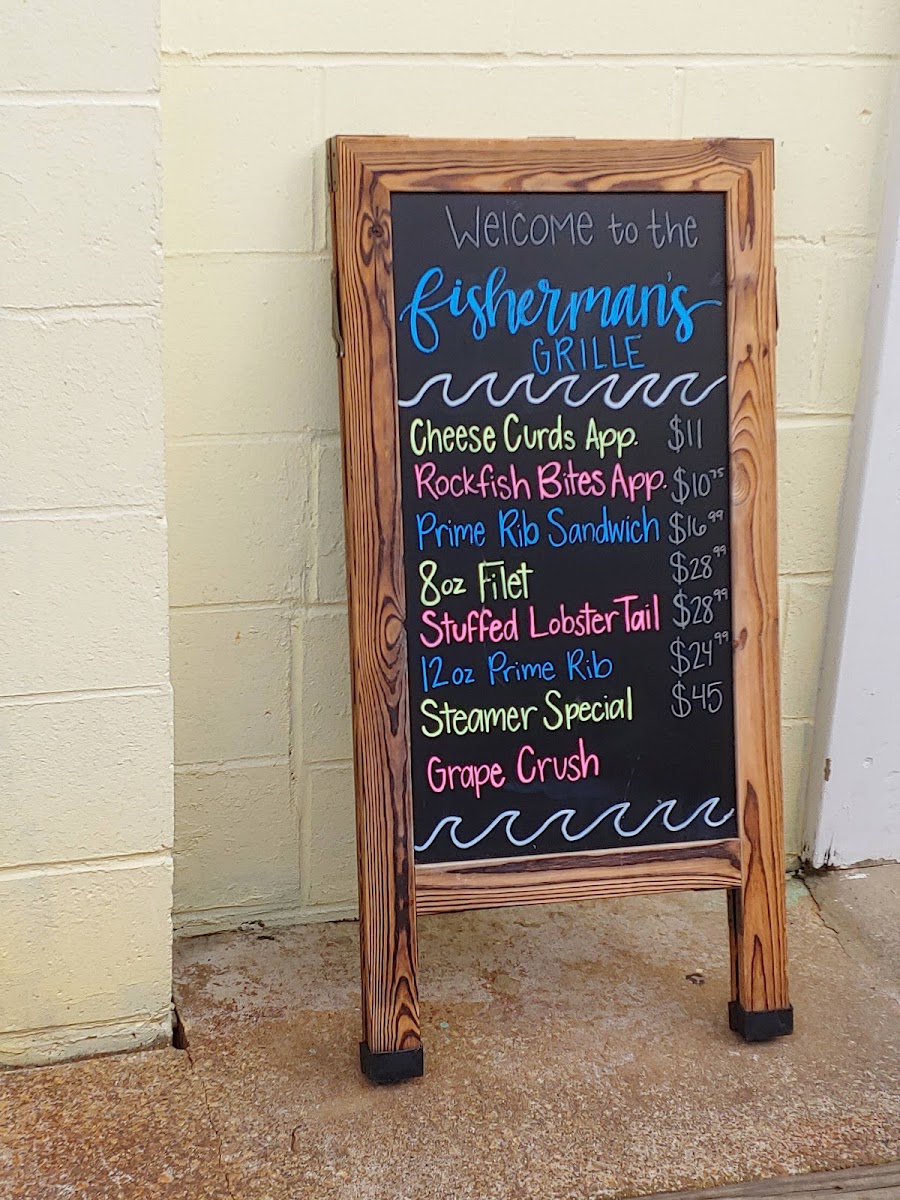 Welcome to the
fisherman's
GRILLE
Cheese Curds App. $11
Rockfish Bites App. $10.75
Prime Rib Sandwich $16.99
8oz Filet $28.99
Stuffed Lobster Tail $28.99
12oz Prime Rib $24.99
Steamer Special $45
Grape Crush